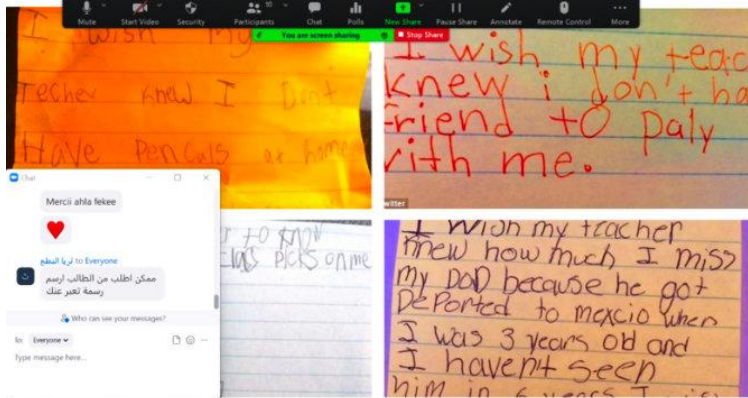 Mute Start Video Security Participants 10 Chat Polls New Share Pause Share Annotate Remote Control More
You are screen sharing Stop Share
I wish my
Techer knew I Dont
Have Pencals at home
I wish my teac
knew i don't ha
friend to paly
with me.
witter
Chat
Mercii ahla fekee
ثريا البطح to Everyone
ممكن اطلب من الطالب ارسم
رسمة تعبر عنك
Who can see your messages?
to: Everyone
Type message here...
to know
class picks on me
I wish my teacher
knew how much I miss
my DaD because he got
DePorted to mexcio when
I was 3 years old and
I haven't seen
him in 6 years I